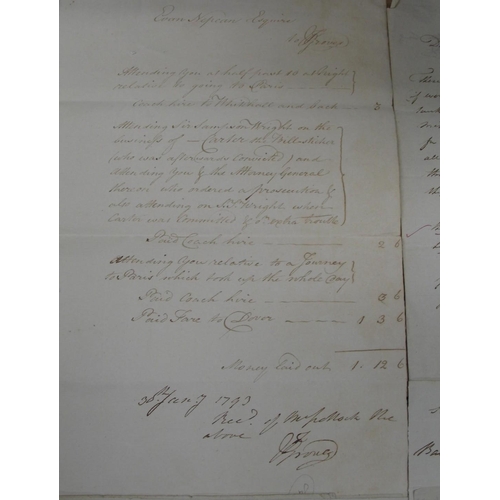 Evan Nepean Esquire
to J Grove
Attending you at half past 10 at night
relative to going to Paris
Coach hire to Whitehall and back 3
Attending Sir Sampson Wright on the
business of Carter the
(who was afterwards Convicted) and
attending You & the Attorney General
thereon who ordered a prosecution &
also attending on Sir Wright when
Carter was Committed & extra trouble
Paid Coach hire 2 6
Attending You relative to a Journey
to Paris which took up the whole Day
Paid Coach hire 3 6
Paid Fare to Dover 1 3 6
Money laid out 1. 12 6
Jany 1793
Recd. of the
above